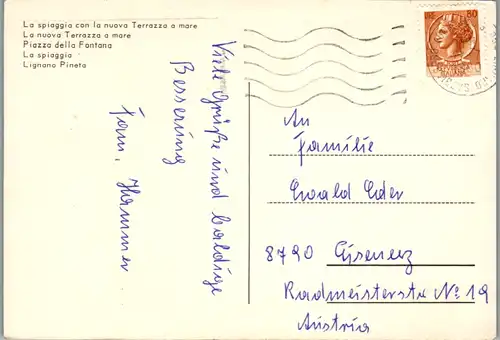 La spiaggia con la nuova Terrazza a mare
La nuova Terrazza a mare
Piazza della Fontana
La spiaggia
Lignano Pineta
Viele Grüße und baldige
Besserung
Fam. Hammer
80
An
Familie
Ewald Eder
8790 Eisenerz
Radmeisterstr No 19
Austria